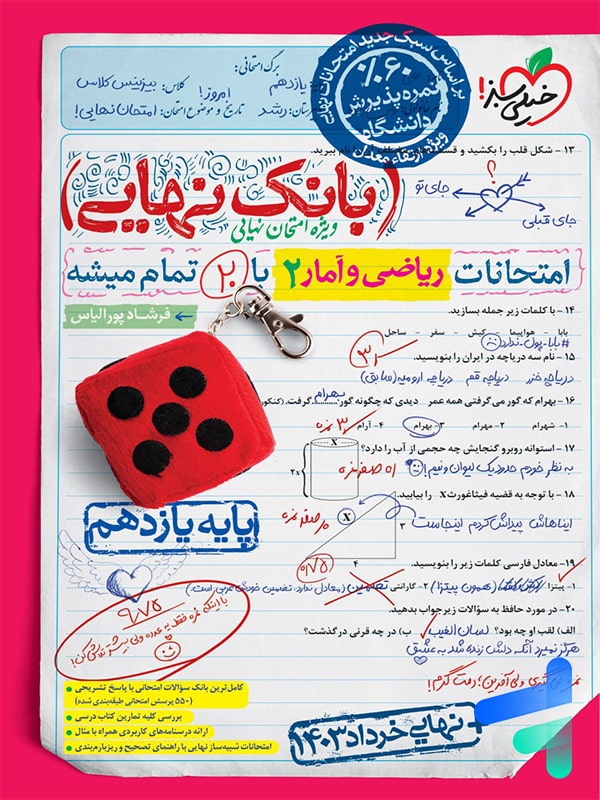 خیلی سبز!
بر اساس سبک جدید امتحانات نهایی
٪۶۰
نمره پذیرش
دانشگاه
ویژه ارتقاء معدل
برگ امتحانی:
یازدهم
کلاس: بیزینس کلاس
امروز!
تاریخ و موضوع امتحان: امتحان نهایی!
رشد
۱۳ - شکل قلب را بکشید و
نام ببرید.
؟
جای تو
جای قبلی
(بانک نهایی)
ویژه امتحان نهایی
امتحانات ریاضی و آمار ۲ با ۲۰ تمام میشه
فرشاد پورالیاس
۱۴ - با کلمات زیر جمله بسازید.
بابا - هواپیما - کیش - سفر - ساحل
#بابا_پول_ندارد
۱۵ - نام سه دریاچه در ایران را بنویسید.
دریاچه خزر دریاچه قم دریاچه ارومیه (سابق)
۱۶ - بهرام که گور می‌گرفتی همه عمر دیدی که چگونه گور بهرام گرفت. (کنکور
۱- شهرام ۲- بهرام ۳- بهرام ۴- آرام
۱۷ - استوانه روبرو گنجایش چه حجمی از آب را دارد؟
X
2X
به نظر خودم حدود یک لیوان و نیم!
۱۸ - با توجه به قضیه فیثاغورث X را بیابید.
ایناهاش پیداش کردم اینجاست
X
۳
۴
۱۹- معادل فارسی کلمات زیر را بنویسید.
۱- پیتزا (همون پیتزا) ۲- گارانتی تضمین (معادل ندارد. تضمین خودش عربی است.)
۲۰- در مورد حافظ به سؤالات زیر جواب بدهید.
الف) لقب او چه بود؟ لسان الغیب ب) در چه قرنی درگذشت؟
هرگز نمیرد آنکه دلش زنده شد به عشق
پایه یازدهم
۹/۷۵
با اینکه نمره فقط یه عدده ولی بیشتر تلاش کن!
ولی آفرین؛ دمت گرم!
کامل‌ترین بانک سؤالات امتحانی با پاسخ تشریحی
(۵۵۰ پرسش امتحانی طبقه‌بندی شده)
بررسی کلیه تمارین کتاب درسی
ارائه درسنامه‌های کاربردی همراه با مثال
امتحانات شبیه‌ساز نهایی با راهنمای تصحیح و ریزبارم‌بندی
+ نهایی خرداد ۱۴۰۳